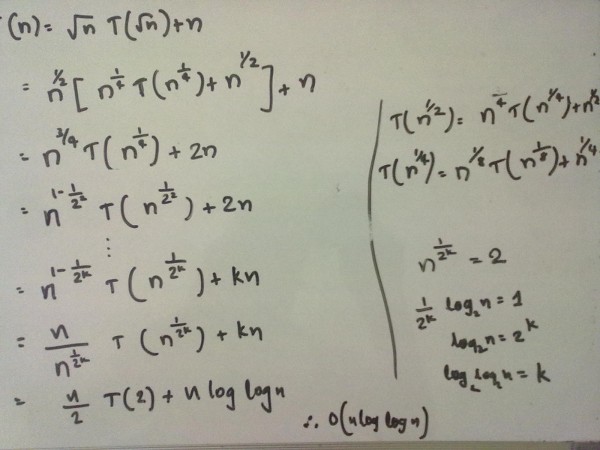 T(n) = √n T(√n) + n
= n^{1/2} [ n^{1/4} T(n^{1/4}) + n^{1/2} ] + n
= n^{3/4} T(n^{1/4}) + 2n
= n^{1-1/2^2} T(n^{1/2^2}) + 2n
⋮
= n^{1-1/2^k} T(n^{1/2^k}) + kn
= n/n^{1/2^k} T(n^{1/2^k}) + kn
= n/2 T(2) + n log log n
T(n^{1/2}) = n^{1/4} T(n^{1/4}) + n^{1/2}
T(n^{1/4}) = n^{1/8} T(n^{1/8}) + n^{1/4}
n^{1/2^k} = 2
1/2^k log₂n = 1
log₂n = 2^k
log₂log₂n = k
∴ O(n log log n)